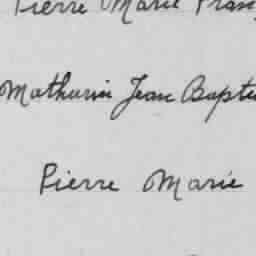 Pierre Marie Fran
Mathurin Jean Bapti
Pierre Marie